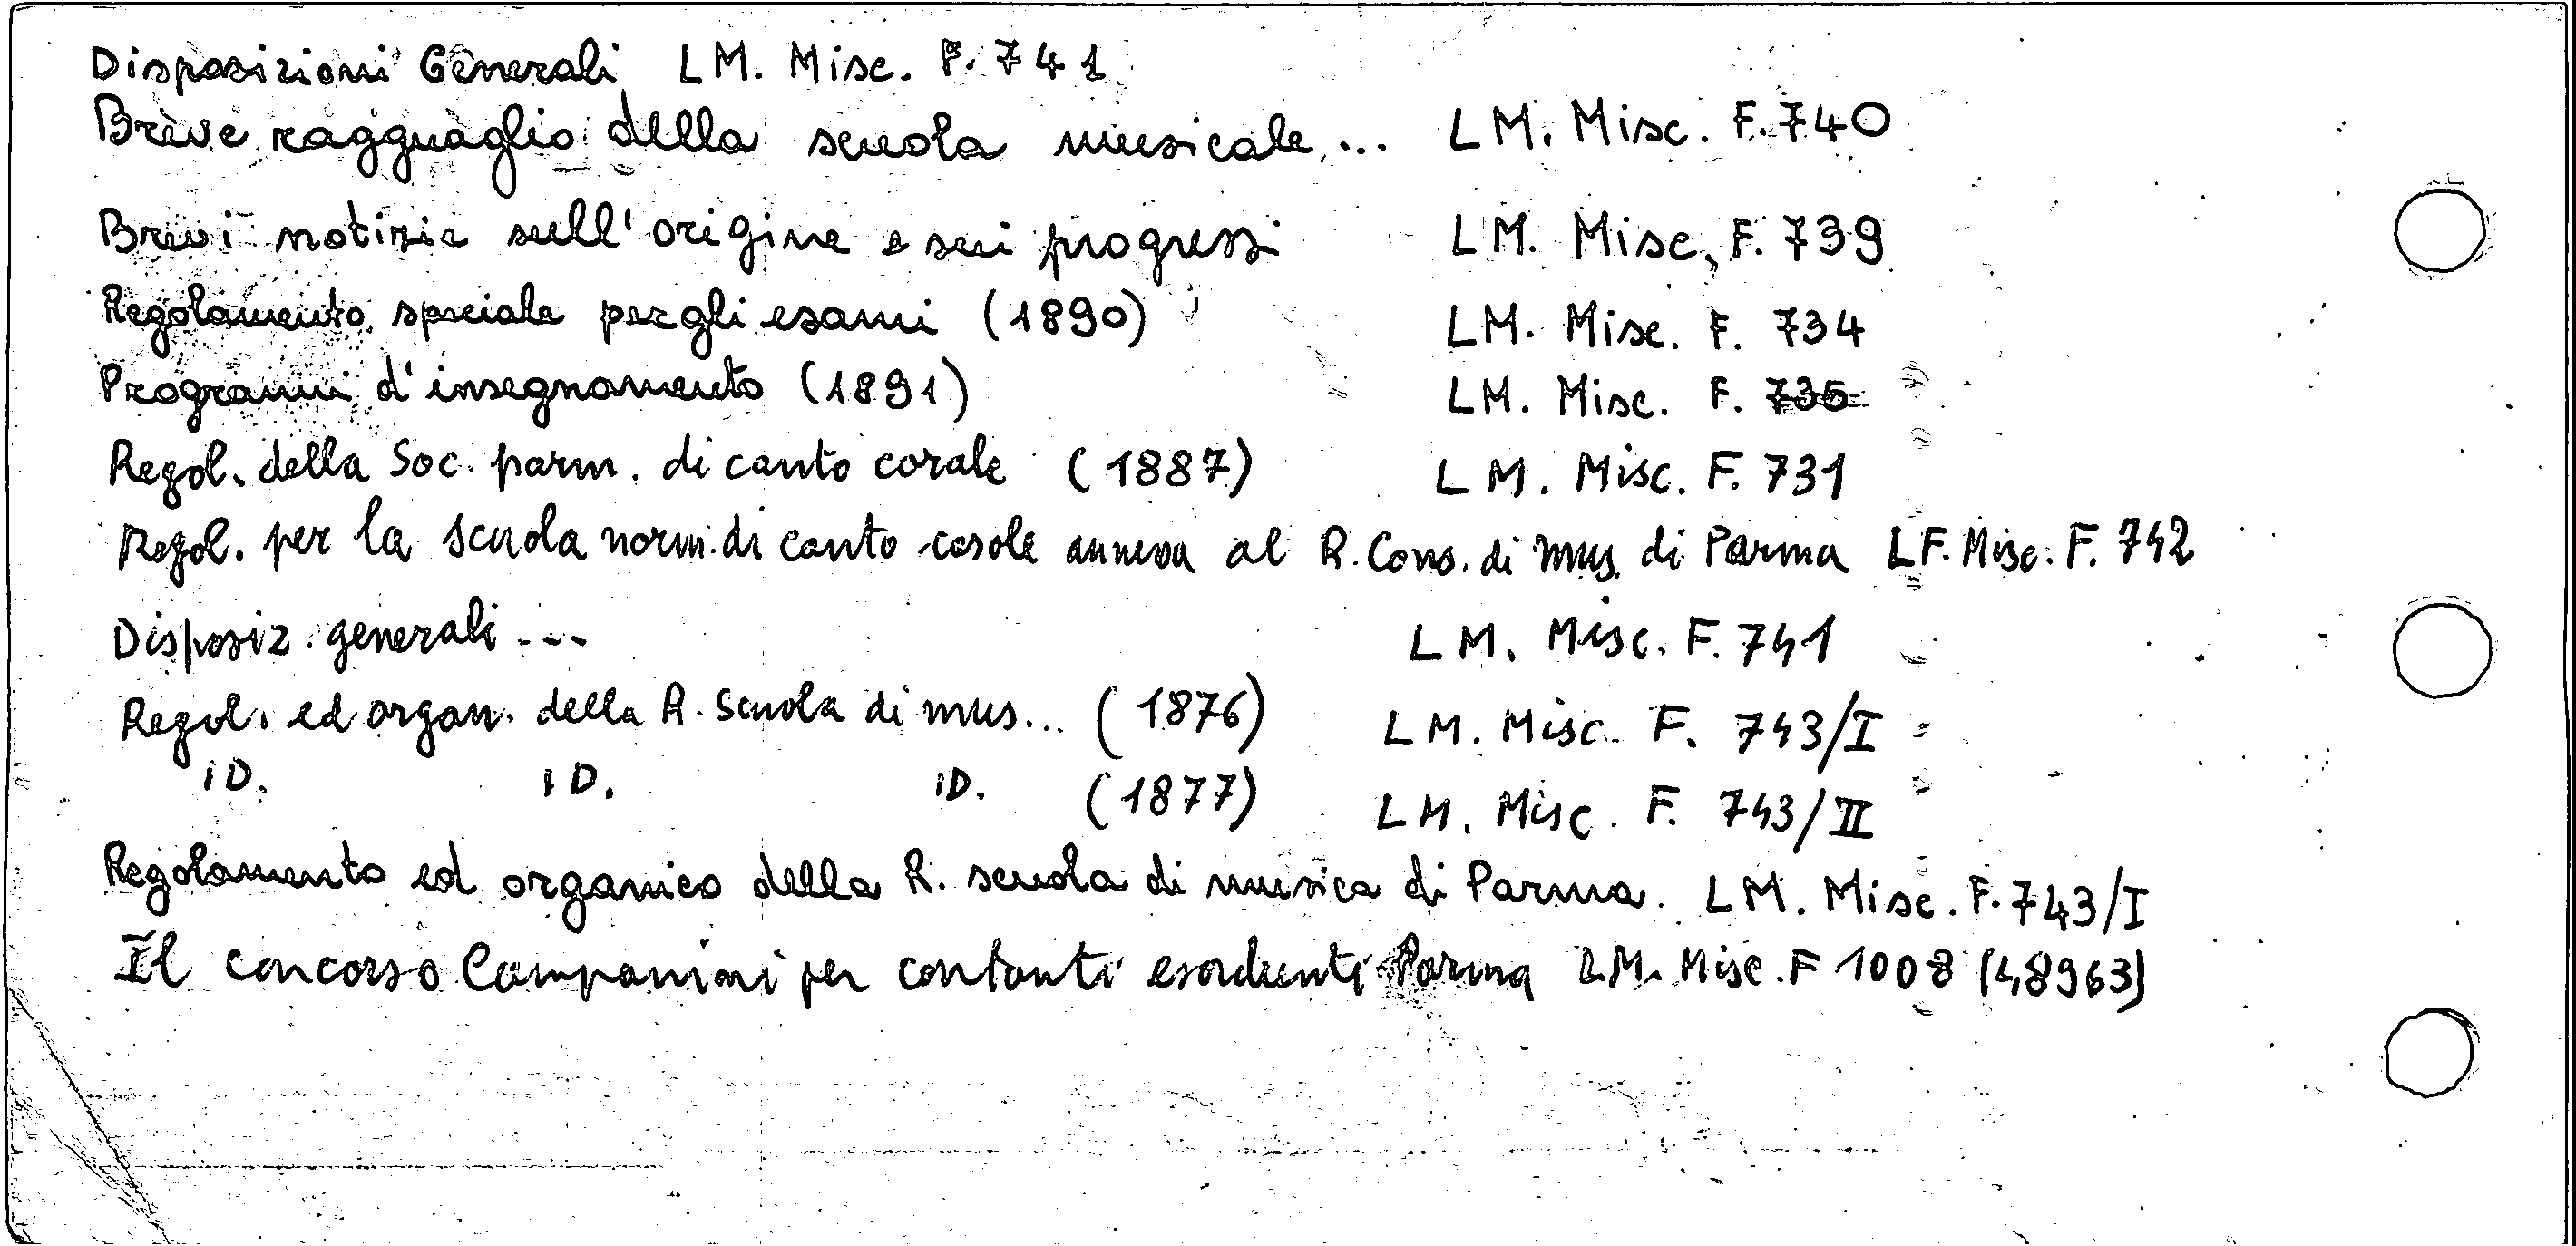 Disposizioni Generali LM. Misc. F. 741
Breve ragguaglio della scuola musicale... LM. Misc. F. 740
Brevi notizie sull'origine e sui progressi LM. Misc. F. 739
Regolamento speciale per gli esami (1890) LM. Misc. F. 734
Programmi d'insegnamento (1891) LM. Misc. F. 735
Regol. della Soc. parm. di canto corale (1887) LM. Misc. F. 731
Regol. per la scuola norm. di canto corale annessa al R. Cons. di mus. di Parma LF. Misc. F. 742
Disposiz. generali --- LM. Misc. F. 741
Regol. ed organ. della R. Scuola di mus... (1876) LM. Misc. F. 743/I
ID. ID. ID. (1877) LM. Misc. F. 743/II
Regolamento ed organico della R. scuola di musica di Parma. LM. Misc. F. 743/I
Il concorso Campanini per cantanti esordienti Parma LM. Misc. F 1008 (48963)